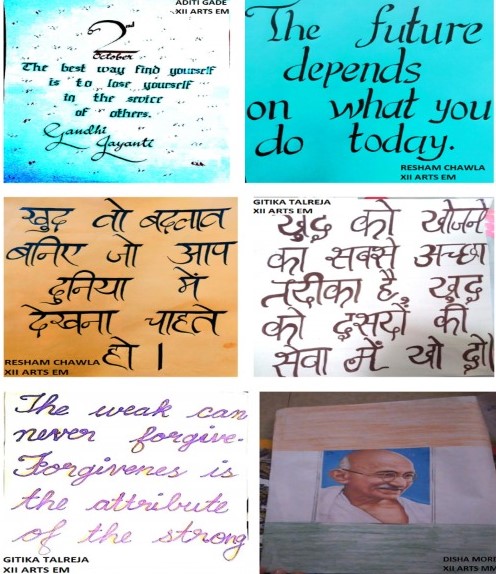 ADITI GADE
XII ARTS EM
2nd
October
The best way find yourself
is to lose yourself
in the sevice
of others.
Gandhi
Jayanti
The future
depends
on what you
do today.
RESHAM CHAWLA
XII ARTS EM
खुद तो बदलाव
बनिए जो आप
दुनिया में
देखना चाहते
हो |
RESHAM CHAWLA
XII ARTS EM
GITIKA TALREJA
XII ARTS EM
खुद को खोजने
का सबसे अच्छा
तरीका है, खुद
को दुसरों की
सेवा में खो दो|
The weak can
never forgive.
Forgivenes is
the attribute
of the strong
GITIKA TALREJA
XII ARTS EM
DISHA MORE
XII ARTS MM